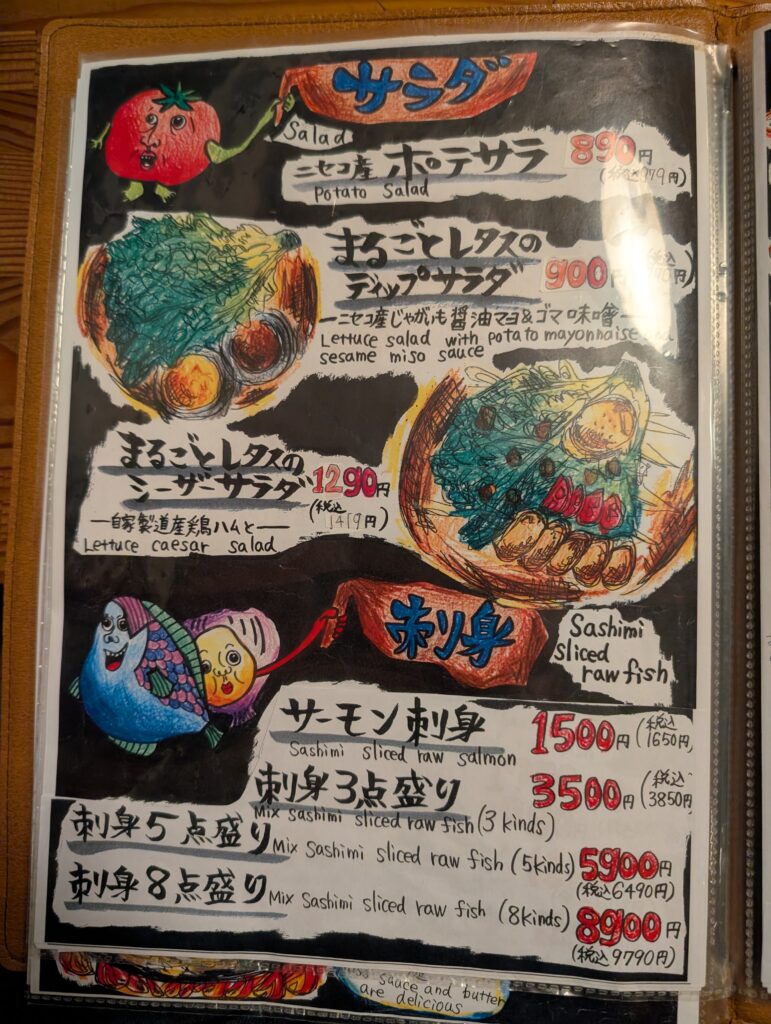 サラダ
Salad
ニセコ産 ポテサラ 890円
Potato Salad (税込979円)
まるごとレタスの
ディップサラダ 900円 (税込
ーニセコ産じゃがいも醤油マヨ&ゴマ味噌ー
Lettuce salad with potato mayonnaise
sesame miso sauce
まるごとレタスの
シーザーサラダ 1290円
(税込1419円)
ー自家製道産鶏ハムとー
Lettuce caesar salad
刺身
Sashimi
sliced
raw fish
サーモン刺身 1500円 (税込1650円
Sashimi sliced raw salmon
刺身3点盛り 3500円 (税込3850円
Mix sashimi sliced raw fish (3 kinds)
刺身5点盛り
Mix Sashimi sliced raw fish (5kinds) 5900円
(税込6490円)
刺身8点盛り
Mix Sashimi sliced raw fish (8kinds) 8900円
(税込9790円)
sauce and butter
are delicious